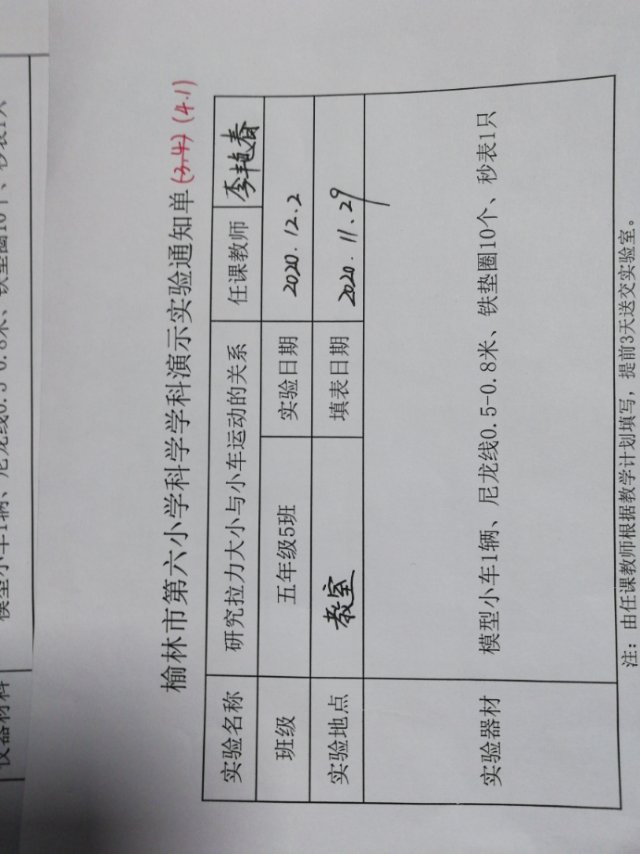 榆林市第六小学科学学科演示实验通知单(3.4)(4.1)
实验名称 研究拉力大小与小车运动的关系 任课教师 李艳春
班级 五年级5班 实验日期 2020.12.2
实验地点 教室 填表日期 2020.11.29
实验器材 模型小车1辆、尼龙线0.5-0.8米、铁垫圈10个、秒表1只
注：由任课教师根据教学计划填写，提前3天送交实验室。
仪器材料 模型小车1辆、尼龙线0.5-0.8米、铁垫圈10个、秒表1只